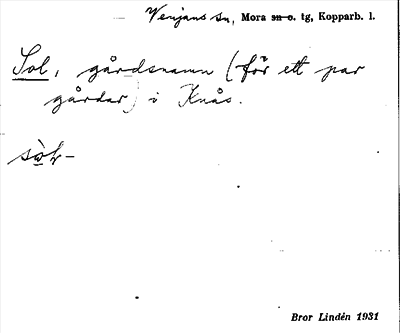 Venjans sn, Mora sn o. tg, Kopparb. l.
Sol, gårdsnamn (för ett par
gårdar) i Knås.
Bror Lindén 1931